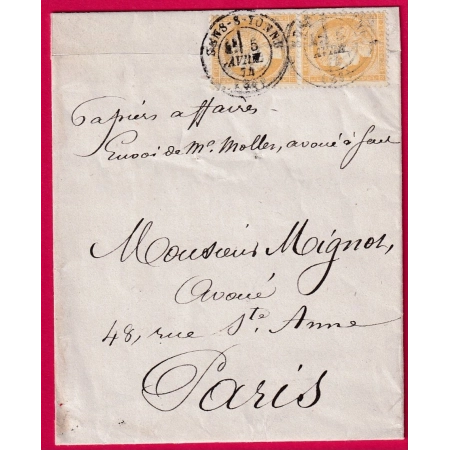 SENS-S-YONNE
5
AVRIL
74
Papiers affaires
Envoi de Me. Moller, avoué à Sens
Monsieur Mignot,
Avoué
48, rue Ste Anne
Paris